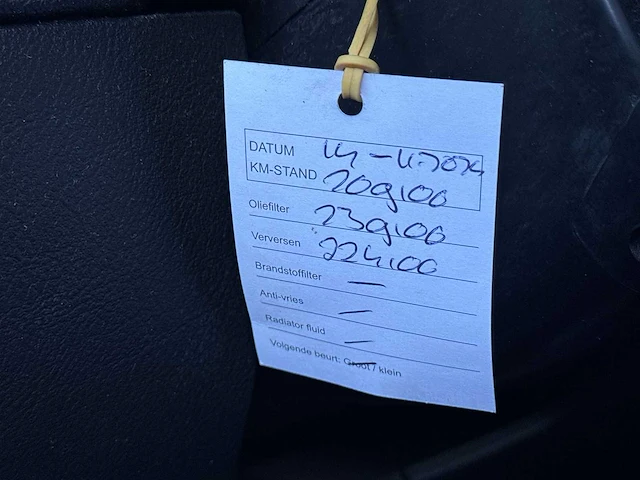 DATUM 14-4-2024
KM-STAND 209100
Oliefilter 239100
Verversen 224100
Brandstoffilter —
Anti-vries —
Radiator fluid —
Volgende beurt: Groot / klein